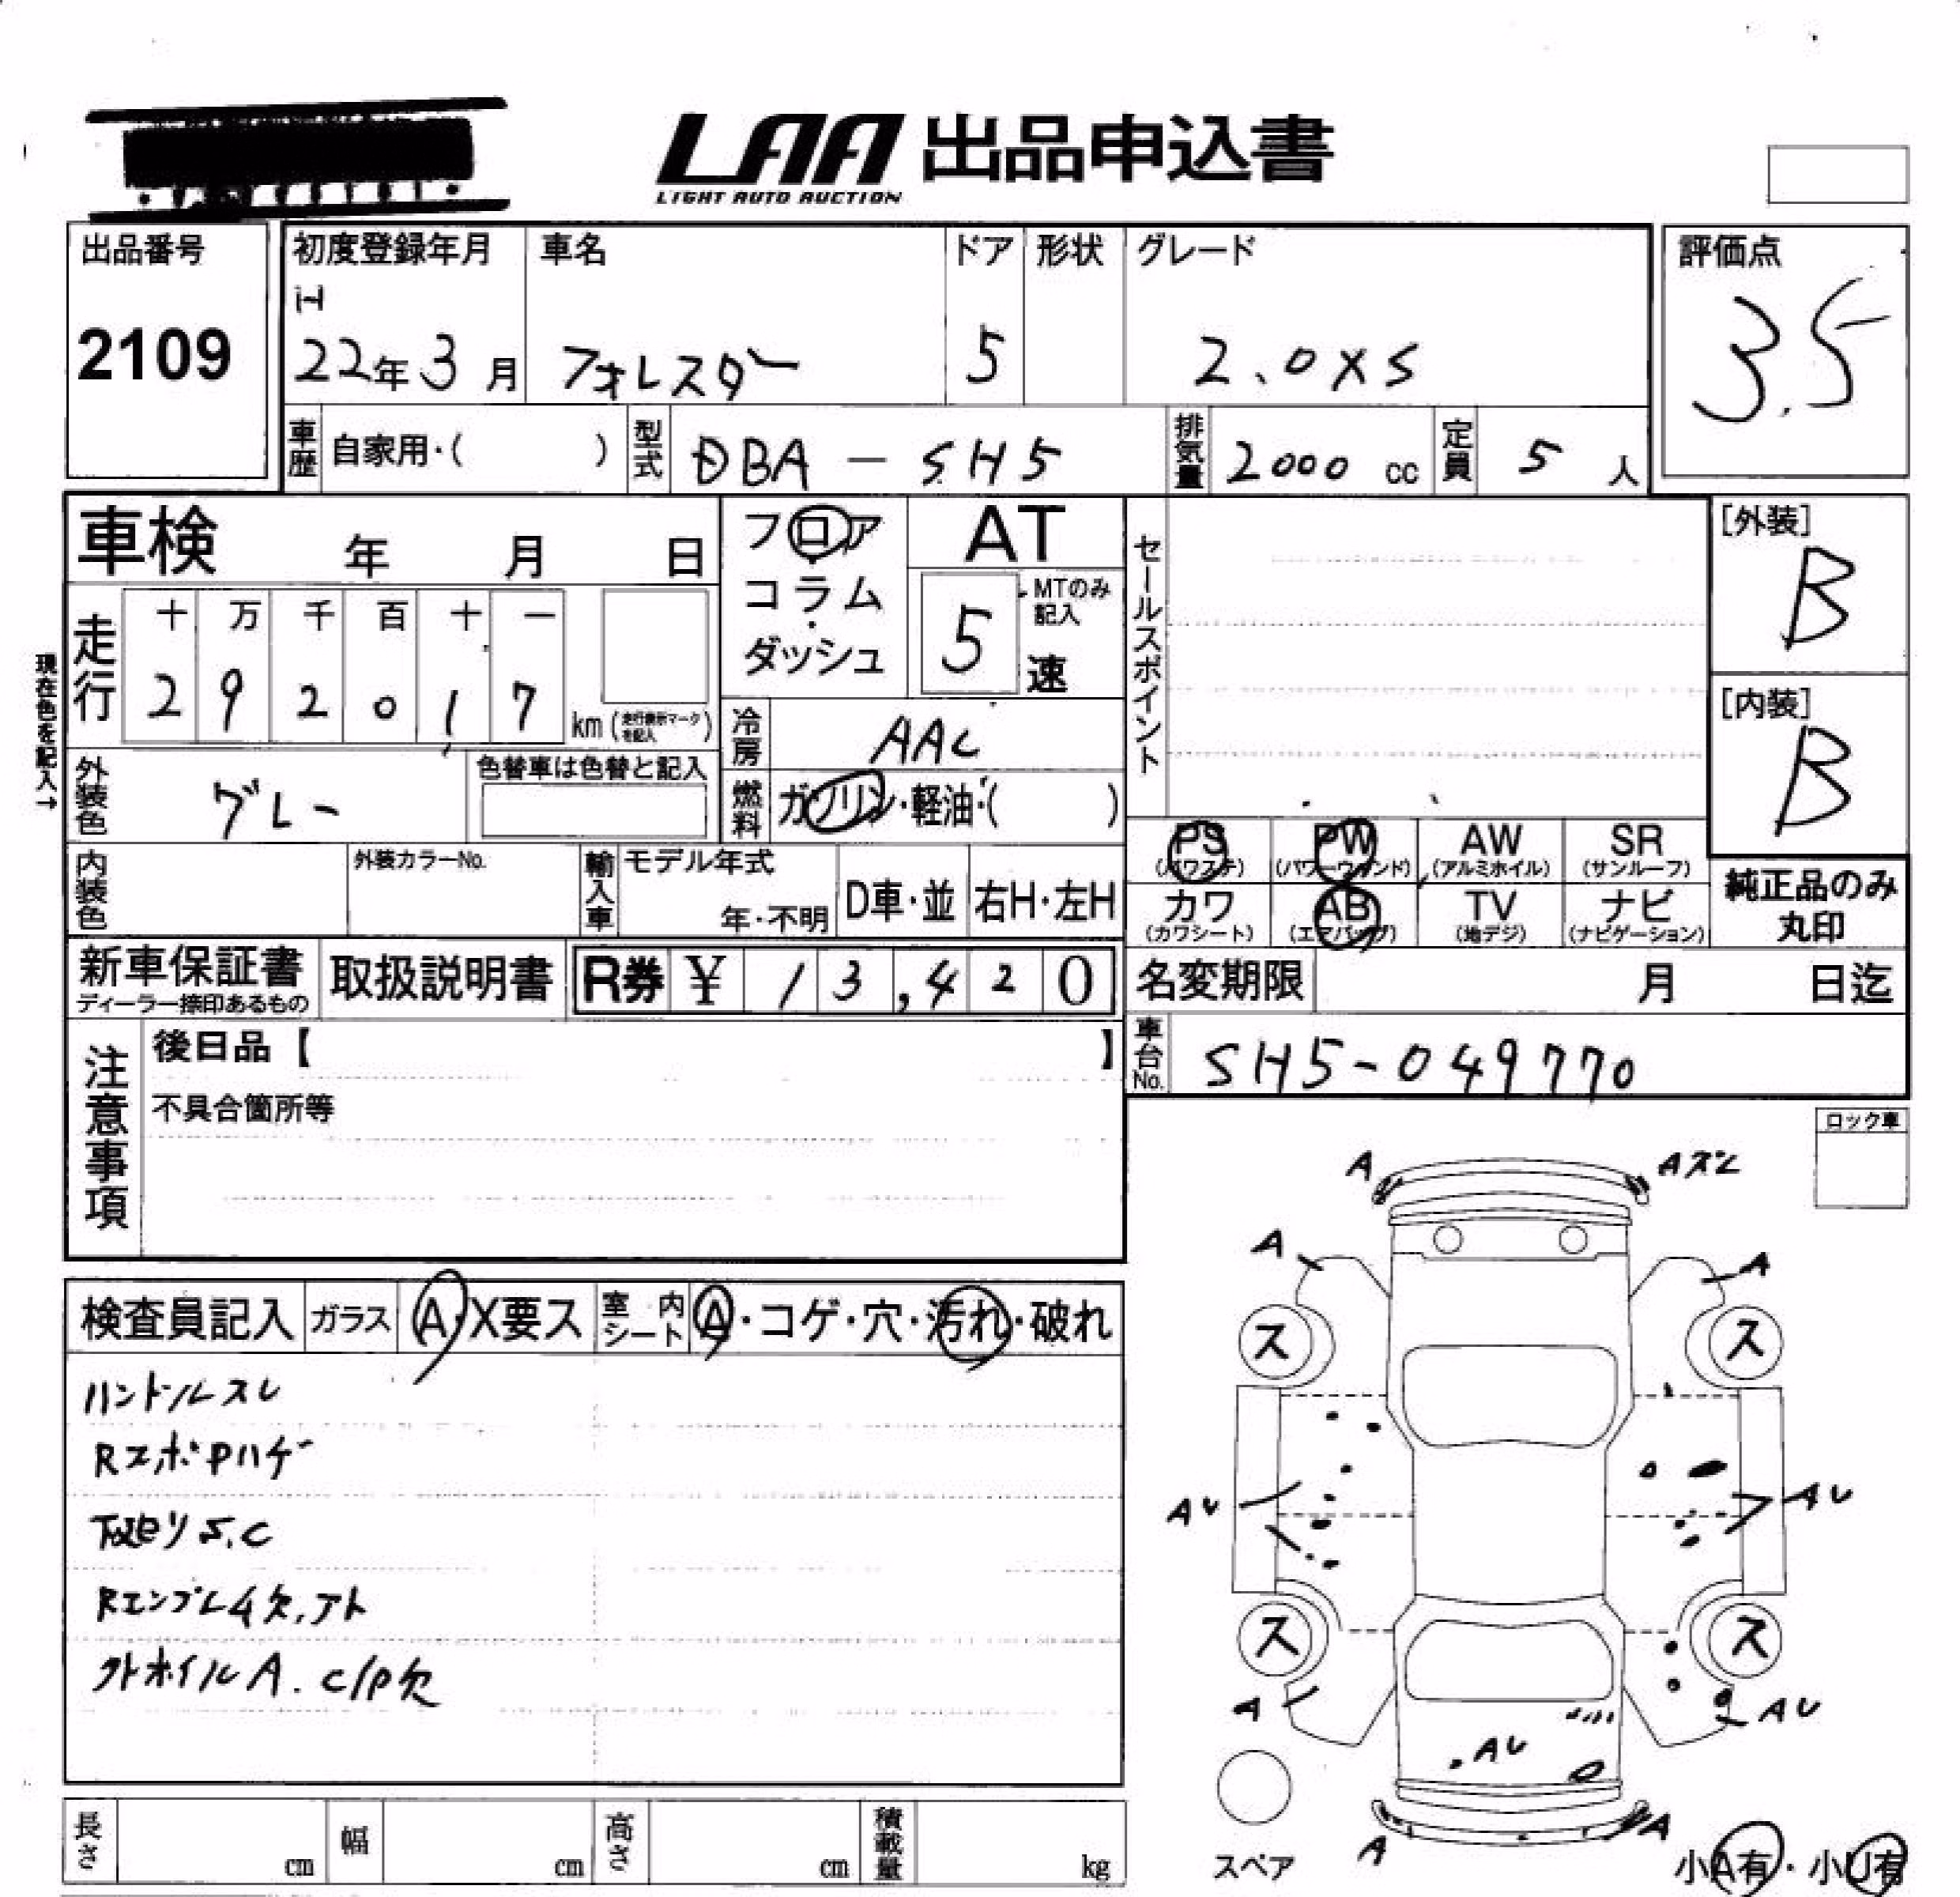 LAA 出品申込書
LIGHT AUTO AUCTION
出品番号
2109
初度登録年月
H
22年3月
車名
フォレスター
ドア
5
形状
グレード
2.0XS
評価点
3.5
車歴 自家用・( )
型式 DBA-SH5
排気量 2000 cc
定員 5 人
車検 年 月 日
フロア
コラム
ダッシュ
AT
5 速
MTのみ
記入
セールスポイント
[外装]
B
[内装]
B
現在色を記入→
走行
十 万 千 百 十 一
2 9 2 0 1 7
km (走行表示マークを記入)
冷房 AAC
外装色 グレー
色替車は色替と記入
燃料 ガソリン・軽油・( )
内装色
外装カラーNo.
輸入車
モデル年式
年・不明
D車・並
右H・左H
PS (パワステ)
PW (パワーウィンド)
AW (アルミホイル)
SR (サンルーフ)
カワ (カワシート)
AB (エアバッグ)
TV (地デジ)
ナビ (ナビゲーション)
純正品のみ
丸印
新車保証書
ディーラー捺印あるもの
取扱説明書
R券 ¥ 13,420
名変期限 月 日迄
車台No. SH5-049770
注意事項
後日品【 】
不具合箇所等
ロック車
検査員記入 ガラス A・X要ス
室内シート A・コゲ・穴・汚れ・破れ
ハンドルスレ
RエンボPハゲ
下廻りS.C
Rエンブレム欠.アト
外ホイルA. C/P欠
A
Aズレ
A
A
ス
ス
AU
AU
ス
ス
A
AU
AU
A
A
スペア
小A有・小U有
長さ cm
幅 cm
高さ cm
積載量 kg